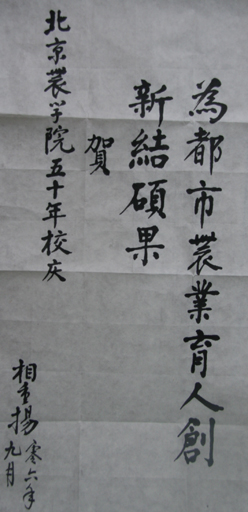 為都市農業育人創
新結碩果
賀
北京農学院五十年校庆
相重揚
零六年
九月